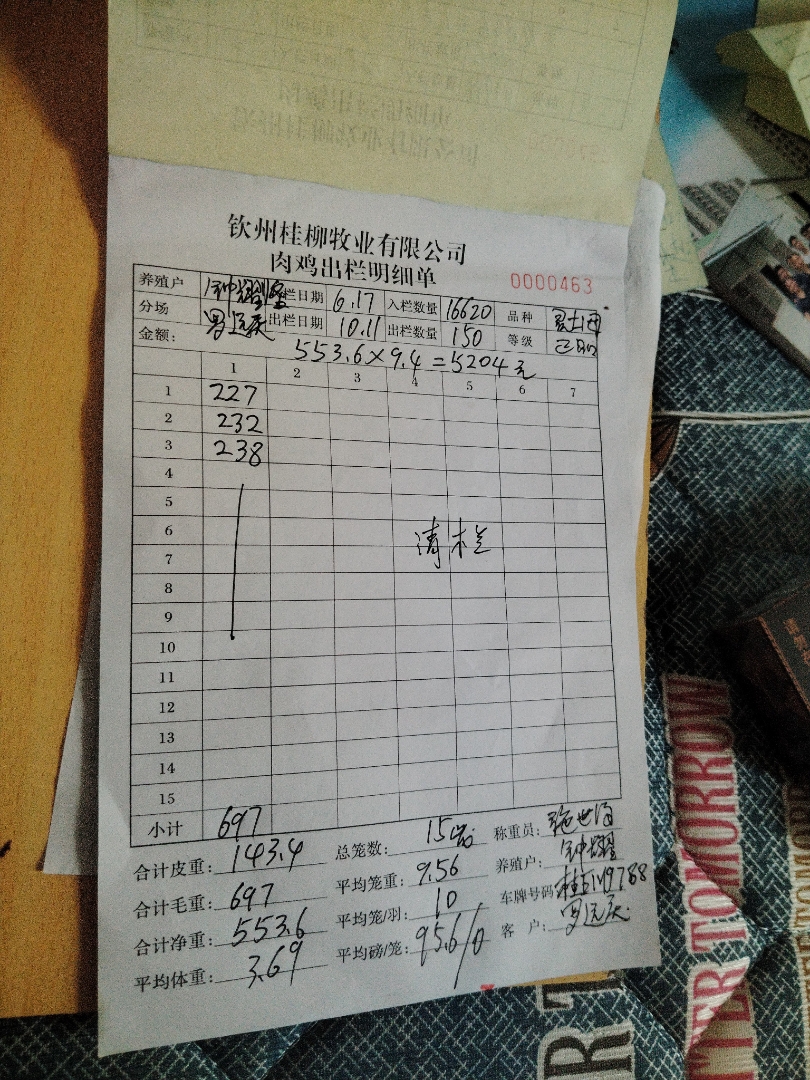 钦州桂柳牧业有限公司
肉鸡出栏明细单 0000463
养殖户 钟耀 栏日期 6.17 入栏数量 16620 品种
分场 罗远庆 出栏日期 10.11 出栏数量 150 等级
金额: 553.6×9.4=5204元
1 2 3 4 5 6 7
1 227
2 232
3 238
4
5
6 清栏
7
8
9
10
11
12
13
14
15
小计 697
合计皮重: 143.4 总笼数: 15 称重员:
合计毛重: 697 平均笼重: 9.56 养殖户: 钟耀
合计净重: 553.6 平均笼/羽: 10 车牌号码
平均体重: 3.69 平均磅/笼: 95.6% 客户: 罗远庆
TTER TOMORROW